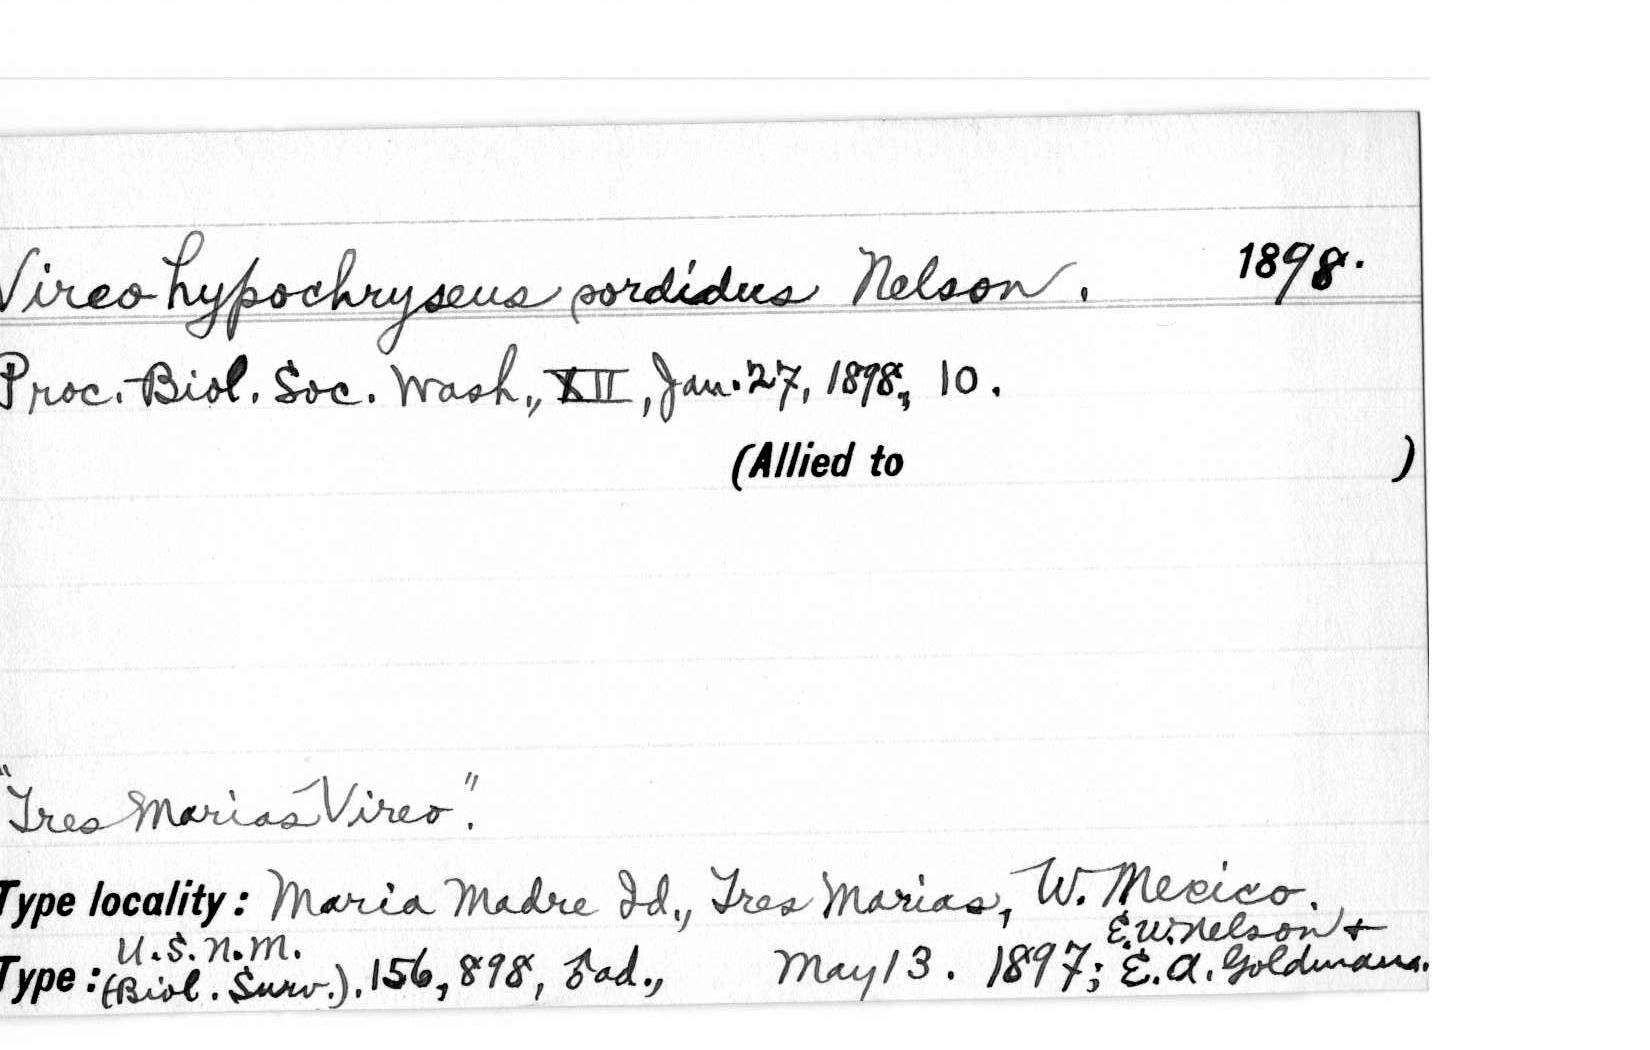 Vireo hypochryseus sordidus Nelson. 1898.
Proc. Biol. Soc. Wash., XII, Jan. 27, 1898, 10.
(Allied to )
"Tres Marias Vireo".
Type locality: Maria Madre Id., Tres Marias, W. Mexico.
U.S.N.M. E.W. Nelson &
Type: (Biol. Surv.). 156,898, ♂ ad., May 13. 1897; E.A. Goldman.